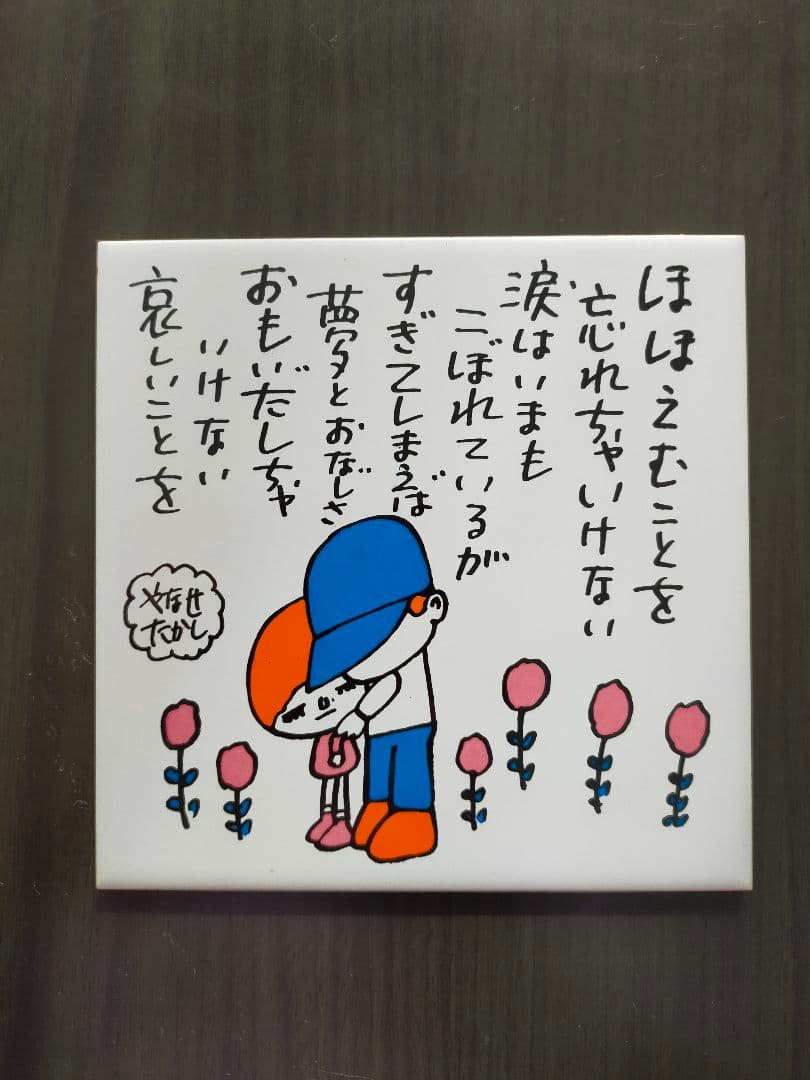 ほほえむことを
忘れちゃいけない
涙はいまも
こぼれているが
すぎてしまえば
夢とおなじさ
おもいだしちゃ
いけない
哀しいことを
やなせ
たかし